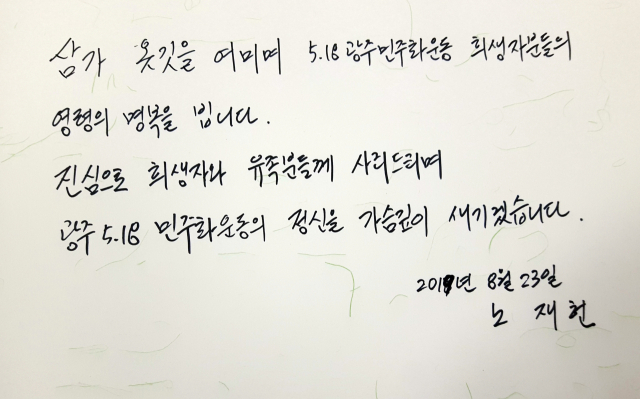 삼가 옷깃을 여미며 5.18 광주민주화운동 희생자분들의
영령의 명복을 빕니다.
진심으로 희생자와 유족분들께 사죄드리며
광주 5.18 민주화운동의 정신을 가슴깊이 새기겠습니다.
2019년 8월 23일
노 재헌